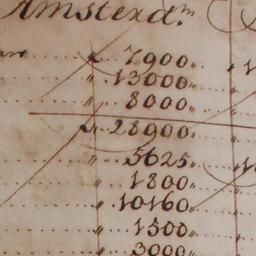 Amsterdm.
7900
13000
8000
28900
5625
1800
10160
1500
3000